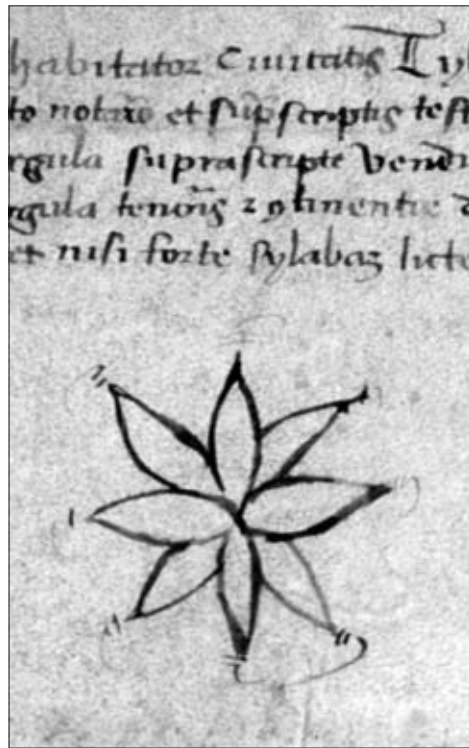 habitator Civitatis Ty
to notario et suprascriptis test
rgula suprascripte Vendi
rgula tenoris
et nisi forte sylabaz licte